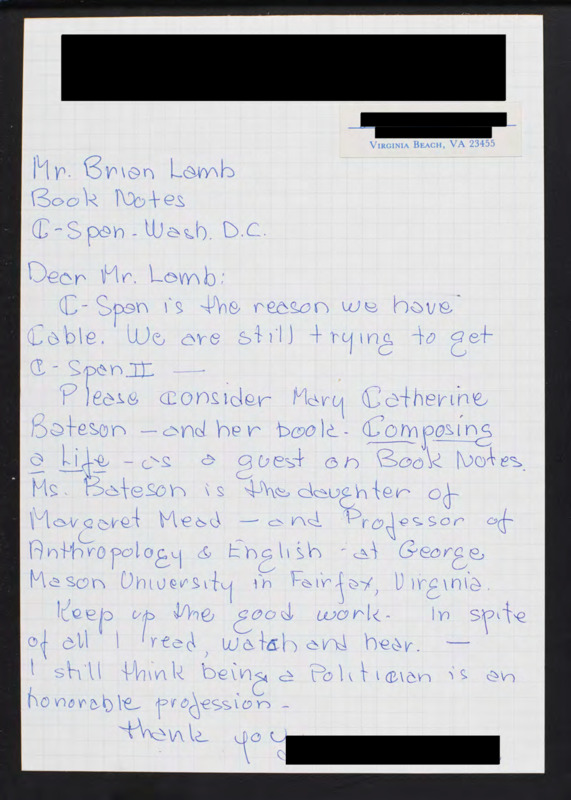 VIRGINIA BEACH, VA 23455
Mr. Brian Lamb
Book Notes
C-Span - Wash. D.C.
Dear Mr. Lamb:
C-Span is the reason we have
Cable. We are still trying to get
C-Span II —
Please consider Mary Catherine
Bateson — and her book - Composing
a Life - as a guest on Book Notes.
Ms. Bateson is the daughter of
Margaret Mead — and Professor of
Anthropology & English - at George
Mason University in Fairfax, Virginia.
Keep up the good work - In spite
of all I read, watch and hear. —
I still think being a Politician is an
honorable profession -
Thank you